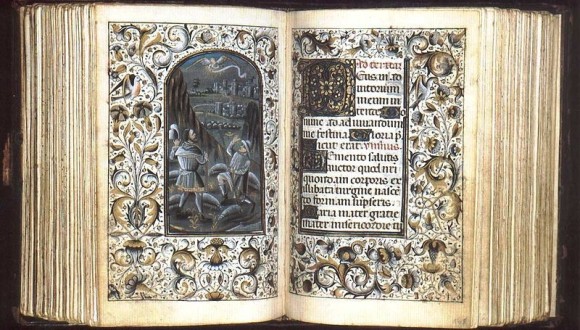 Ad tertia
Eus in ad
iutorium
meum in
tende Do
mine ad adiuvandum
me festina Gloria p
Sicut erat ymnus
Memento salutis
auctor quod nri
quondam corporis ex
illibata virgine nascē
do formam sumpseris
Maria mater gratie
mater misericordie tu